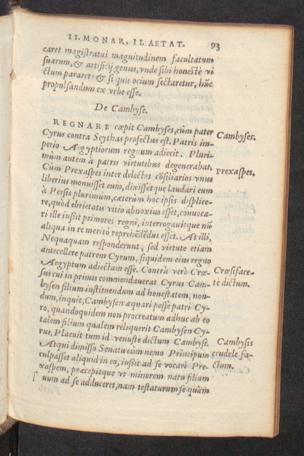 II. MONAR. II. AETAT. 93
caret magistratui magnitudinem facultatum
suarum, & artificij genus, vnde sibi honeste vi
ctum pararet: & si quis ocium sectaretur, hũc
propulsandum ex vrbe esse.
De Cambyse.
REGNARE cœpit Cambyses, cùm pater
Cyrus contra Scythas profectus est. Patris im-
perio Ægyptiorum regnum adiecit. Pluri-
mùm autem à patris virtutibus degenerabat.
Cùm Prexaspes inter delectos cõsiliarios vnus
liberius monuisset eum, dixissetque laudari eum
à Persis plurimùm, cæterùm hoc ipsis displice-
re, quòd ebrietatis vitio obnoxius esset, conuoca-
ri ille iussit primores regni, interrogauitque nũ
aliqua in re meritò reprehẽdẽdus esset. At illi,
Nequaquam responderunt, sed virtute etiam
antecellere patrem Cyrum, siquidem eius regno
Ægyptum adiectam esse. Contrà verò Crœ-
sus cui in primis commendauerat Cyrus Cam-
bysen filium instituendum ad honestatem, non-
dum, inquit, Cambysen æquari posse patri Cy-
ro, quandoquidem non procreatum adhuc ab eo
talem filium qualem reliquerit Cambysen Cy-
rus. Placuit tum id venustè dictum Cambysi.
Atqui dimisso Senatu cùm nemo Principum
culpasset aliquid in eo, iussit ad se vocari Pre-
xaspem, præcepitque vt minorem natu filium
suum ad se adduceret, nam testaturum se quàm
Cambyses.
Prexaspes.
Crœsi face-
tè dictum.
Cambysis
crudele fa-
ctum.